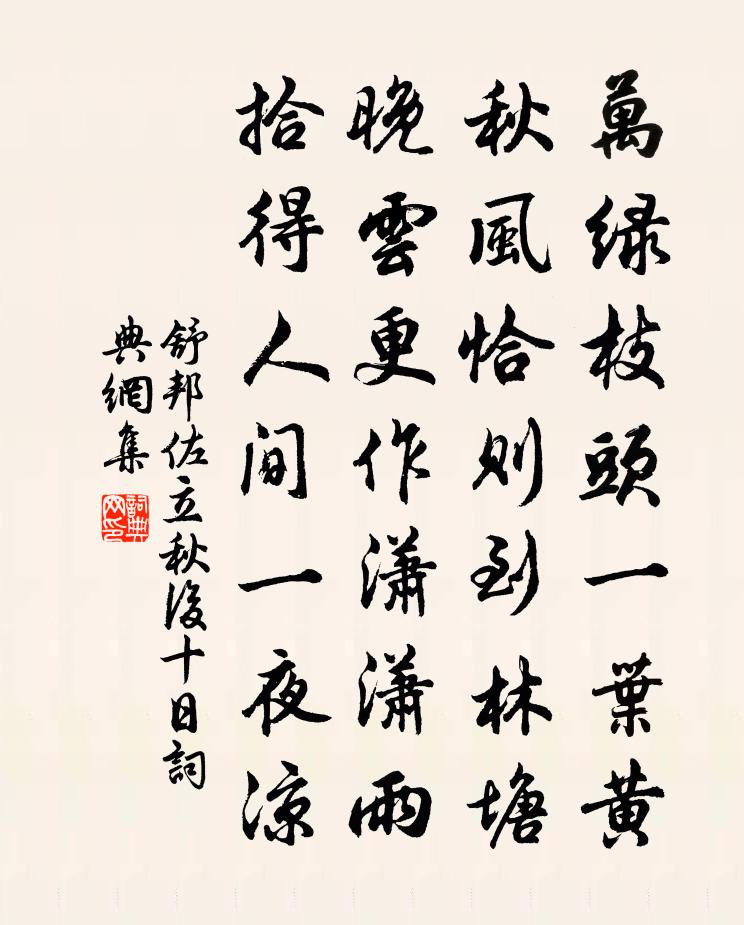 萬緑枝頭一葉黃
秋風恰则到林塘
晚雲更作瀟瀟雨
拾得人间一夜凉
舒邦佐立秋後十日詞
典網集
詞典
网印